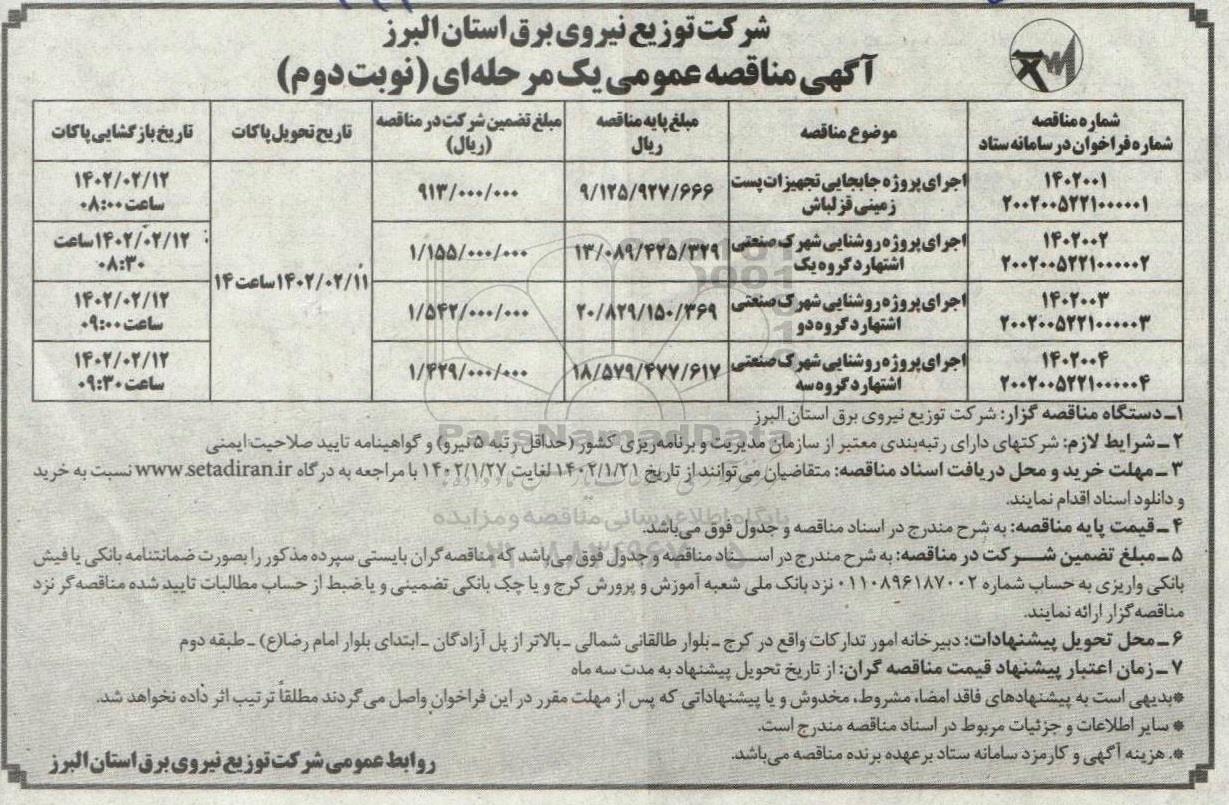 شرکت توزیع نیروی برق استان البرز
آگهی مناقصه عمومی یک مرحله‌ای (نوبت دوم)
شماره مناقصه شماره فراخوان در سامانه ستاد | موضوع مناقصه | مبلغ پایه مناقصه ریال | مبلغ تضمین شرکت در مناقصه (ریال) | تاریخ تحویل پاکات | تاریخ بازگشایی پاکات
۱۴۰۲۰۰۱ ۲۰۰۲۰۰۵۲۲۱۰۰۰۰۰۱ | اجرای پروژه جابجایی تجهیزات پست زمینی قزلباش | ۹/۱۲۵/۹۲۷/۶۶۶ | ۹۱۳/۰۰۰/۰۰۰ | ۱۴۰۲/۰۲/۱۱ ساعت ۱۴ | ۱۴۰۲/۰۲/۱۲ ساعت ۰۸:۰۰
۱۴۰۲۰۰۲ ۲۰۰۲۰۰۵۲۲۱۰۰۰۰۰۲ | اجرای پروژه روشنایی شهرک صنعتی اشتهارد گروه یک | ۱۳/۰۸۹/۴۲۵/۳۲۹ | ۱/۱۵۵/۰۰۰/۰۰۰ | ۱۴۰۲/۰۲/۱۲ ساعت ۰۸:۳۰
۱۴۰۲۰۰۳ ۲۰۰۲۰۰۵۲۲۱۰۰۰۰۰۳ | اجرای پروژه روشنایی شهرک صنعتی اشتهارد گروه دو | ۲۰/۸۲۹/۱۵۰/۳۶۹ | ۱/۵۴۲/۰۰۰/۰۰۰ | ۱۴۰۲/۰۲/۱۲ ساعت ۰۹:۰۰
۱۴۰۲۰۰۴ ۲۰۰۲۰۰۵۲۲۱۰۰۰۰۰۴ | اجرای پروژه روشنایی شهرک صنعتی اشتهارد گروه سه | ۱۸/۵۷۹/۴۷۷/۶۱۷ | ۱/۴۲۹/۰۰۰/۰۰۰ | ۱۴۰۲/۰۲/۱۲ ساعت ۰۹:۳۰
۱ـ دستگاه مناقصه گزار: شرکت توزیع نیروی برق استان البرز
۲ـ شرایط لازم: شرکتهای دارای رتبه‌بندی معتبر از سازمان مدیریت و برنامه‌ریزی کشور (حداقل رتبه ۵ نیرو) و گواهینامه تایید صلاحیت ایمنی
۳ـ مهلت خرید و محل دریافت اسناد مناقصه: متقاضیان می‌توانند از تاریخ ۱۴۰۲/۱/۲۱ لغایت ۱۴۰۲/۱/۲۷ با مراجعه به درگاه www.setadiran.ir نسبت به خرید
و دانلود اسناد اقدام نمایند.
۴ـ قیمت پایه مناقصه: به شرح مندرج در اسناد مناقصه و جدول فوق می‌باشد.
۵ـ مبلغ تضمین شرکت در مناقصه: به شرح مندرج در اسناد مناقصه و جدول فوق می‌باشد که مناقصه گران بایستی سپرده مذکور را بصورت ضمانتنامه بانکی یا فیش
بانکی واریزی به حساب شماره ۰۱۱۰۸۹۶۱۸۷۰۰۲ نزد بانک ملی شعبه آموزش و پرورش کرج و یا چک بانکی تضمینی و یا ضبط از حساب مطالبات تایید شده مناقصه‌گر نزد
مناقصه‌گزار ارائه نمایند.
۶ـ محل تحویل پیشنهادات: دبیرخانه امور تدارکات واقع در کرج ـ بلوار طالقانی شمالی ـ بالاتر از پل آزادگان ـ ابتدای بلوار امام رضا(ع) ـ طبقه دوم
۷ـ زمان اعتبار پیشنهاد قیمت مناقصه گران: از تاریخ تحویل پیشنهاد به مدت سه ماه
*بدیهی است به پیشنهادهای فاقد امضا، مشروط، مخدوش و یا پیشنهاداتی که پس از مهلت مقرر در این فراخوان واصل می‌گردند مطلقاً ترتیب اثر داده نخواهد شد.
* سایر اطلاعات و جزئیات مربوط در اسناد مناقصه مندرج است.
*. هزینه آگهی و کارمزد سامانه ستاد برعهده برنده مناقصه می‌باشد.
روابط عمومی شرکت توزیع نیروی برق استان البرز
ParsNamadData
پایگاه اطلاع رسانی مناقصه و مزایده